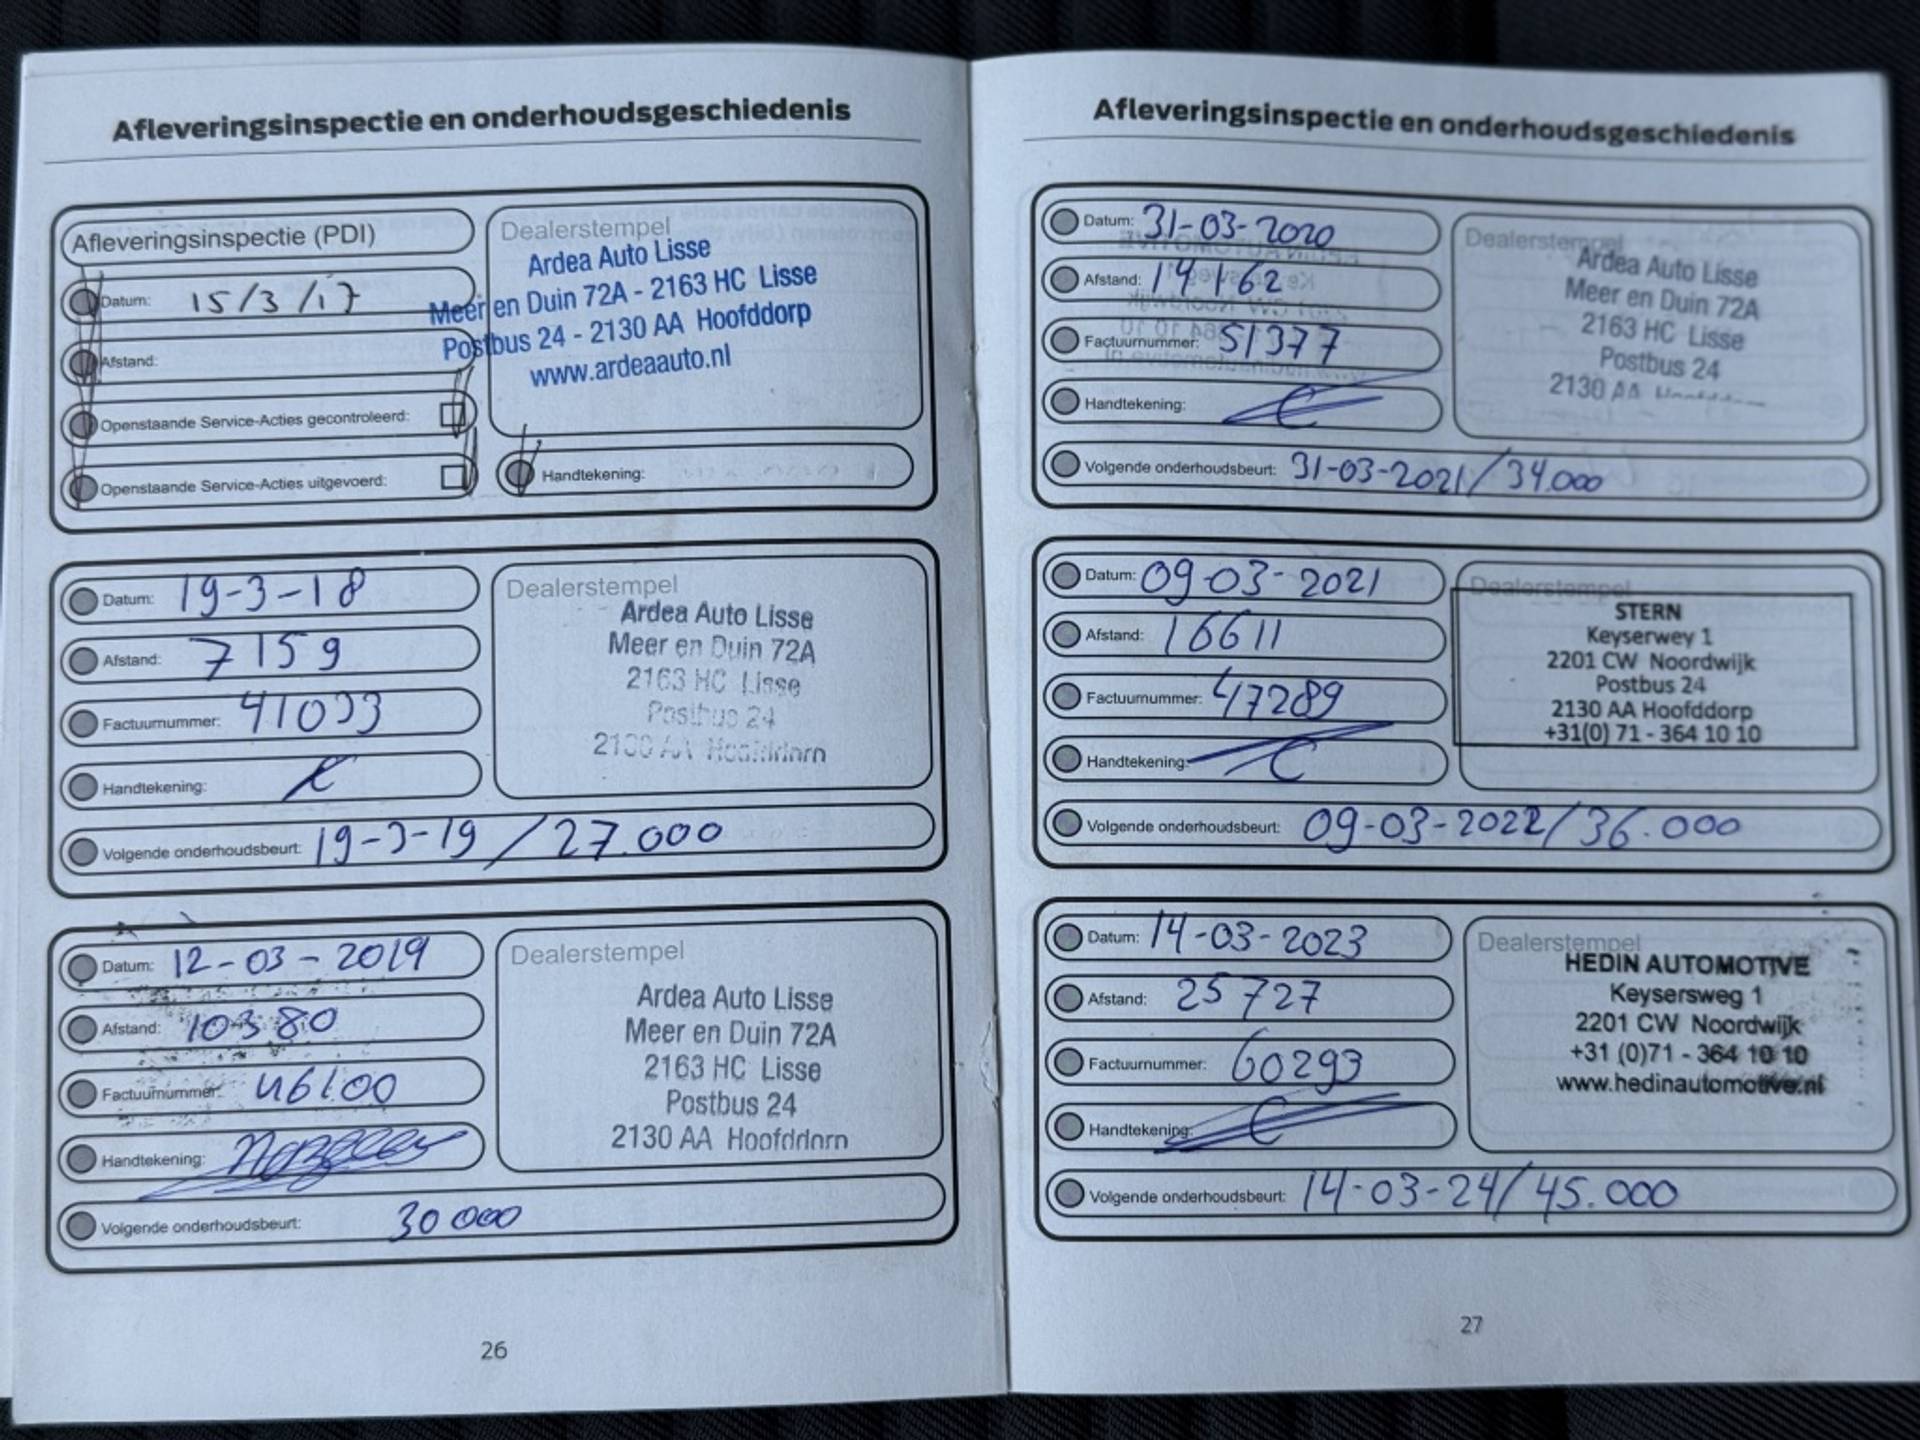 Afleveringsinspectie en onderhoudsgeschiedenis
Afleveringsinspectie (PDI)
Datum: 15/3/17
Afstand:
Openstaande Service-Acties gecontroleerd:
Openstaande Service-Acties uitgevoerd:
Dealerstempel
Ardea Auto Lisse
Meer en Duin 72A - 2163 HC Lisse
Postbus 24 - 2130 AA Hoofddorp
www.ardeaauto.nl
Handtekening:
Datum: 19-3-18
Afstand: 7159
Factuurnummer: 41093
Handtekening:
Dealerstempel
Ardea Auto Lisse
Meer en Duin 72A
2163 HC Lisse
Postbus 24
2130 AA Hoofddorp
Volgende onderhoudsbeurt: 19-3-19 / 27.000
Datum: 12-03-2019
Afstand: 10380
Factuurnummer: 46100
Handtekening:
Dealerstempel
Ardea Auto Lisse
Meer en Duin 72A
2163 HC Lisse
Postbus 24
2130 AA Hoofddorp
Volgende onderhoudsbeurt: 30 000
26
Afleveringsinspectie en onderhoudsgeschiedenis
Datum: 31-03-2020
Afstand: 14162
Factuurnummer: 51377
Handtekening:
Dealerstempel
Ardea Auto Lisse
Meer en Duin 72A
2163 HC Lisse
Postbus 24
2130 AA
Volgende onderhoudsbeurt: 31-03-2021 / 34.000
Datum: 09-03-2021
Afstand: 16611
Factuurnummer: 47289
Handtekening:
Dealerstempel
STERN
Keyserwey 1
2201 CW Noordwijk
Postbus 24
2130 AA Hoofddorp
+31(0) 71 - 364 10 10
Volgende onderhoudsbeurt: 09-03-2022/36.000
Datum: 14-03-2023
Afstand: 25727
Factuurnummer: 60293
Handtekening:
Dealerstempel
HEDIN AUTOMOTIVE
Keysersweg 1
2201 CW Noordwijk
+31 (0)71 - 364 10 10
www.hedinautomotive.nl
Volgende onderhoudsbeurt: 14-03-24/45.000
27